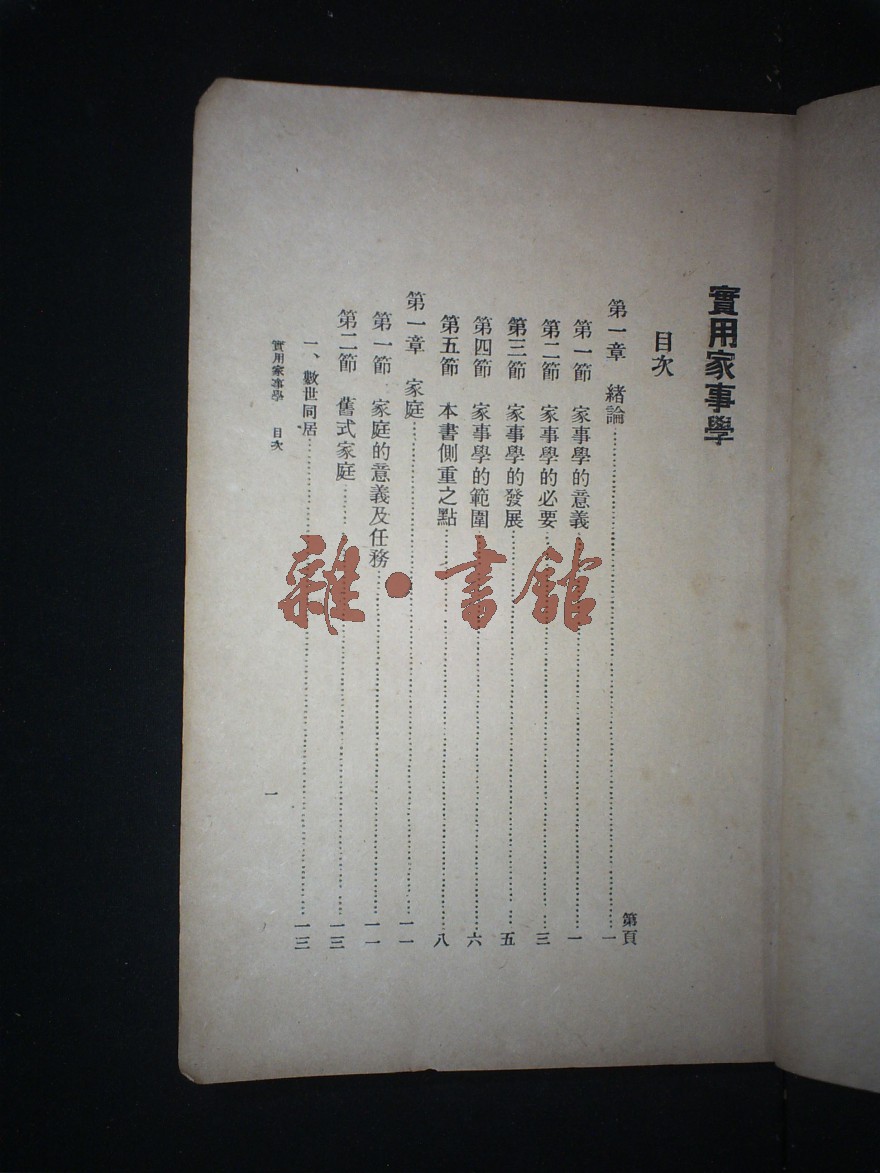 實用家事學
目次
第頁
第一章 緒論……一
第一節 家事學的意義……一
第二節 家事學的必要……三
第三節 家事學的發展……五
第四節 家事學的範圍……六
第五節 本書側重之點……八
第一章 家庭……一一
第一節 家庭的意義及任務……一一
第二節 舊式家庭……一三
一、數世同居……一三
實用家事學 目次 一
雜·書館